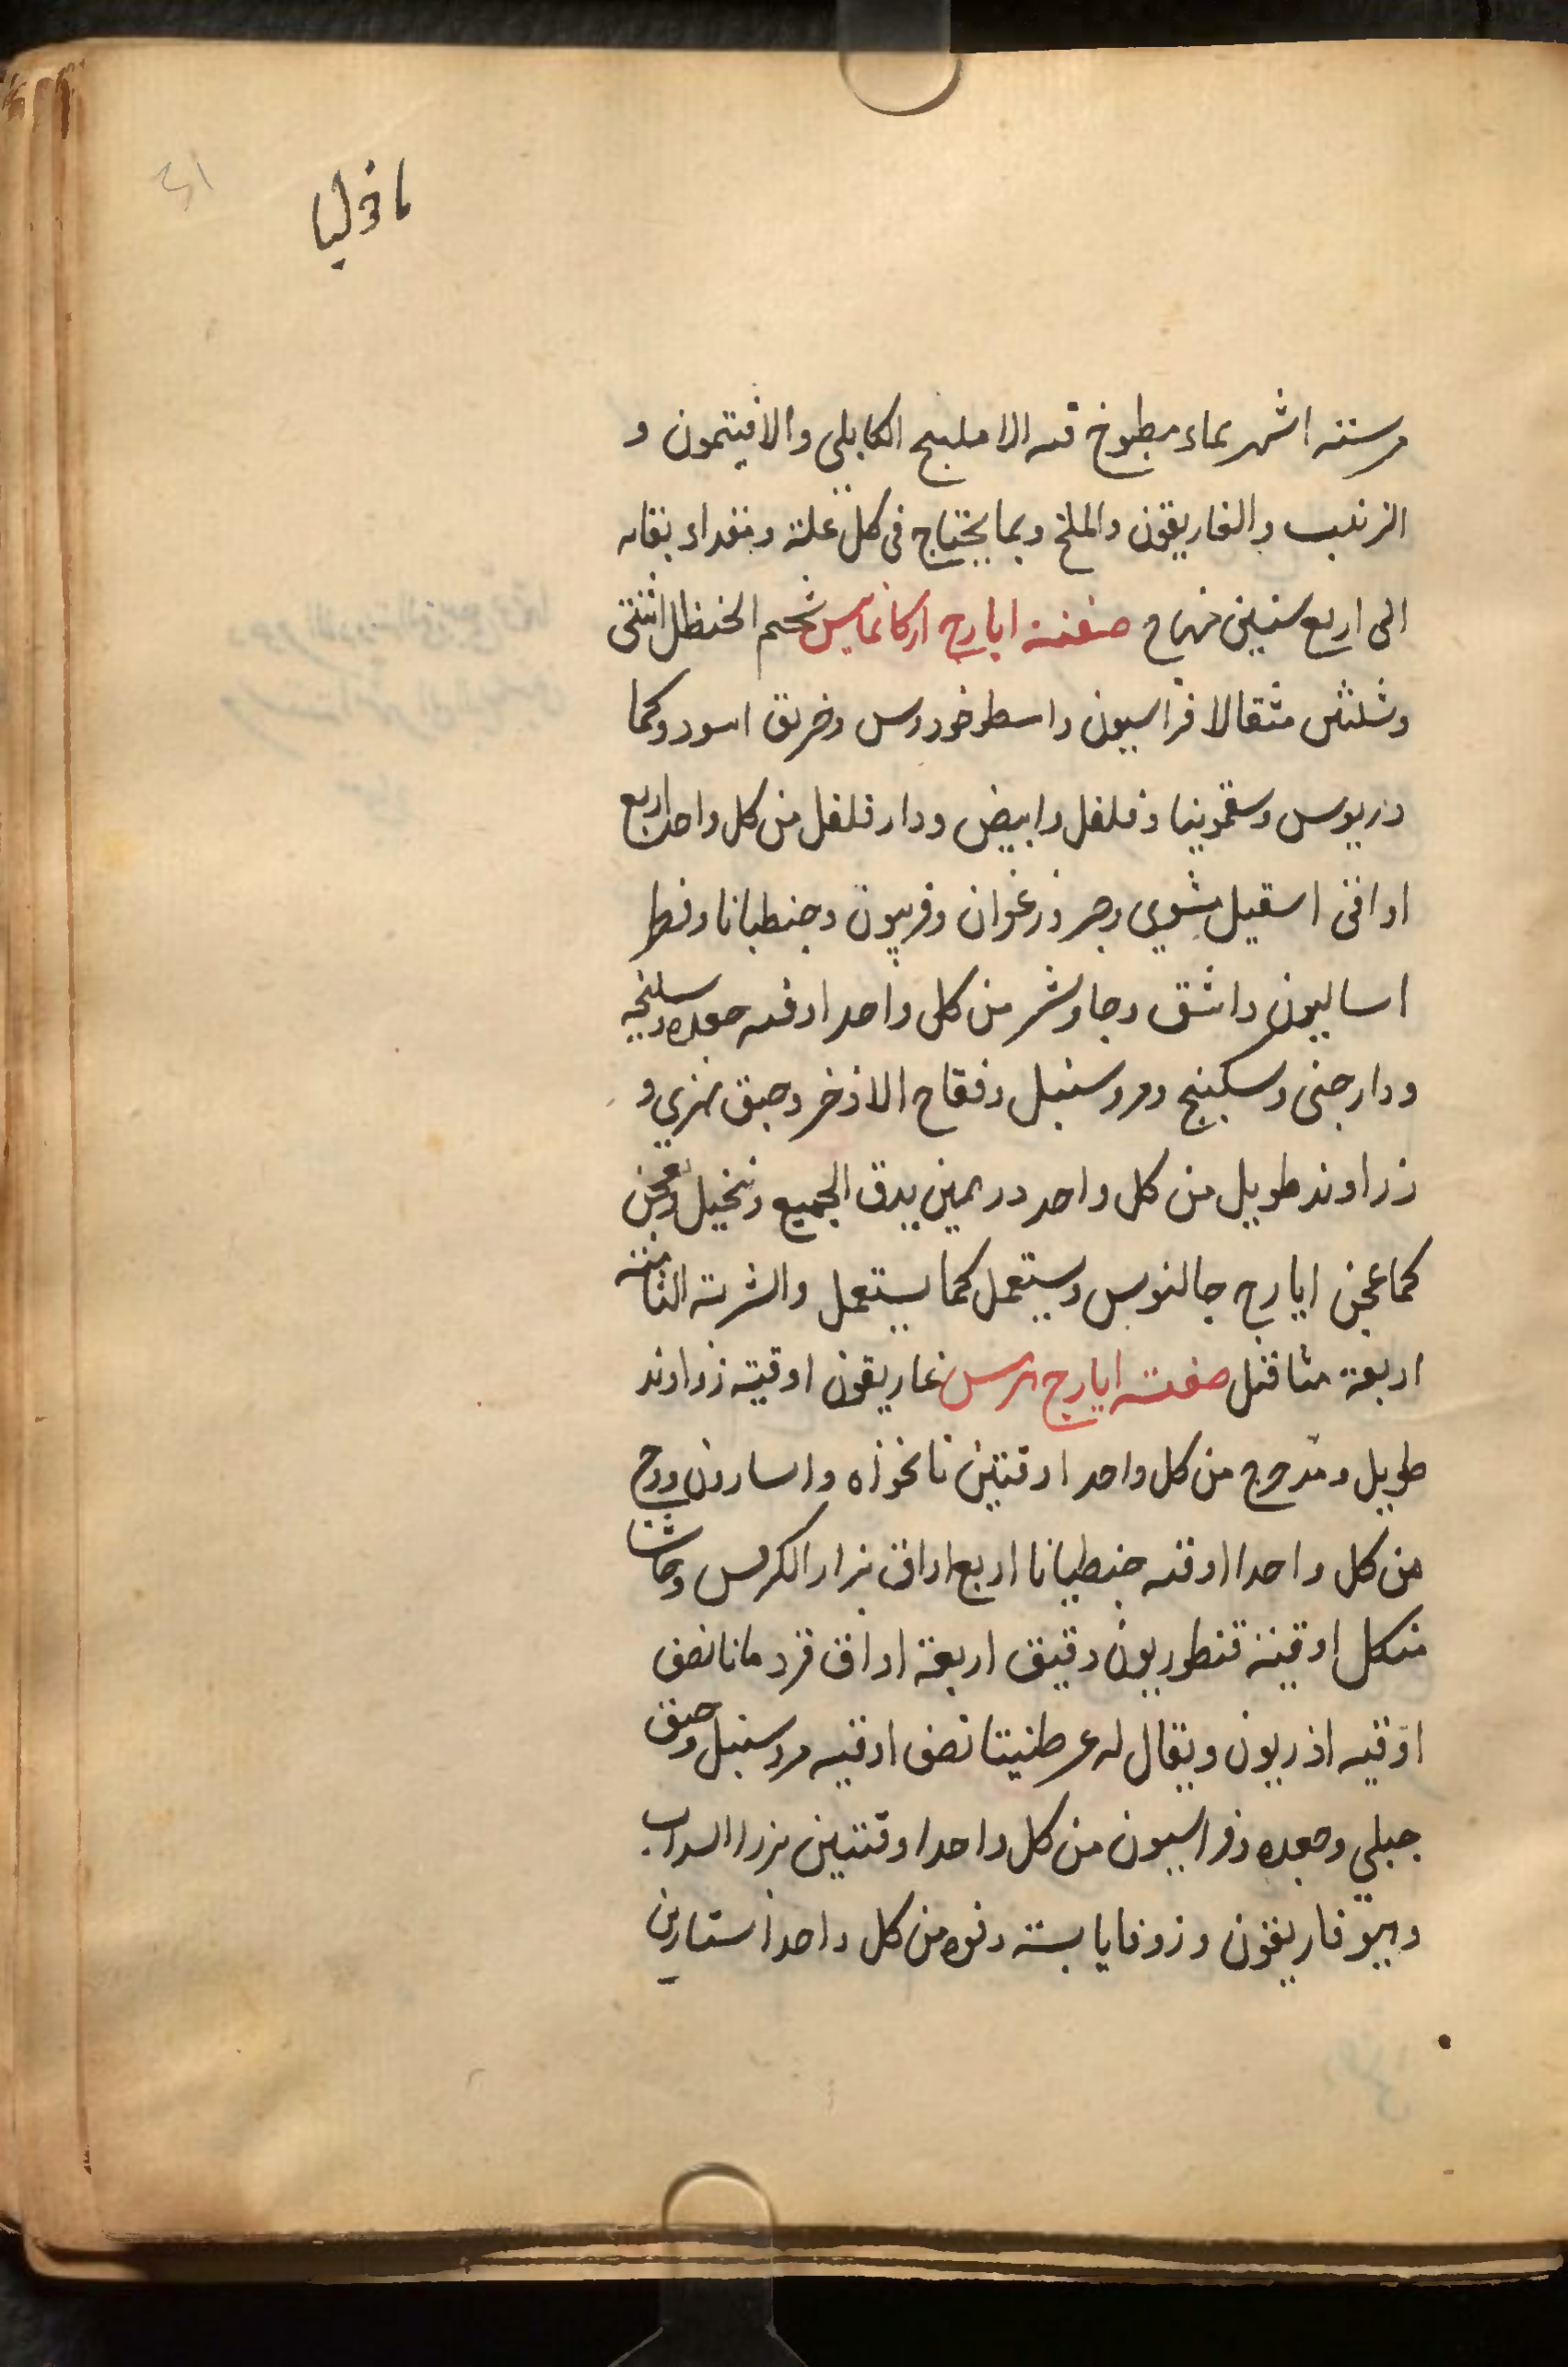 ٤١
مافوليا
من ستة اشهر بماء مطبوخ فيه الاهليلج الكابلي والافيتمون و
الزبيب والغاريقون والملح وبما يحتاج في كل علة ومقدار بقائه
الى اربع سنين منهاج صفة ايارج اركاغانيس شحم الحنظل اثنتى
وثلثين مثقالا فراسيون واسطوخودوس وخربق اسود وكما
دريوس وسقمونيا وفلفل وابيض ودار فلفل من كل واحد اربع
اواقى اسقيل مشوي وصبر وزعفران وفربيون وجنطيانا وفطر
اساليون واشق وجاوشير من كل واحد اوقيه جعده وسليخه
ودارجنى وسكبينج ومر وسنبل وفقاح الاذخر وحبق نهري و
زراوند طويل من كل واحد درهمين يدق الجميع وينخيل ويعجن
كما عجن ايارج جالنوس ويستعمل كما يستعمل والشربة التامة منه
اربعة مثاقيل صفة ايارج هرمس غاريقون اوقية زراوند
طويل ومدحرج من كل واحد اوقيتين نانخواه واسارون ووج
من كل واحدا اوقيه جنطيانا اربع اواق بزار الكرفس وحاشا
منكل اوقية قنطوريون دقيق اربعة اواق قردمانا نصف
اوقيه اذريون ويقال له عرطنيثا نصف اوقيه مر وسنبل وحبق
جبلي وجعده وفراسيون من كل واحد اوقيتين بزر السداب
وهيوفاريقون وزوفا يابسة وفوه من كل واحد استارين